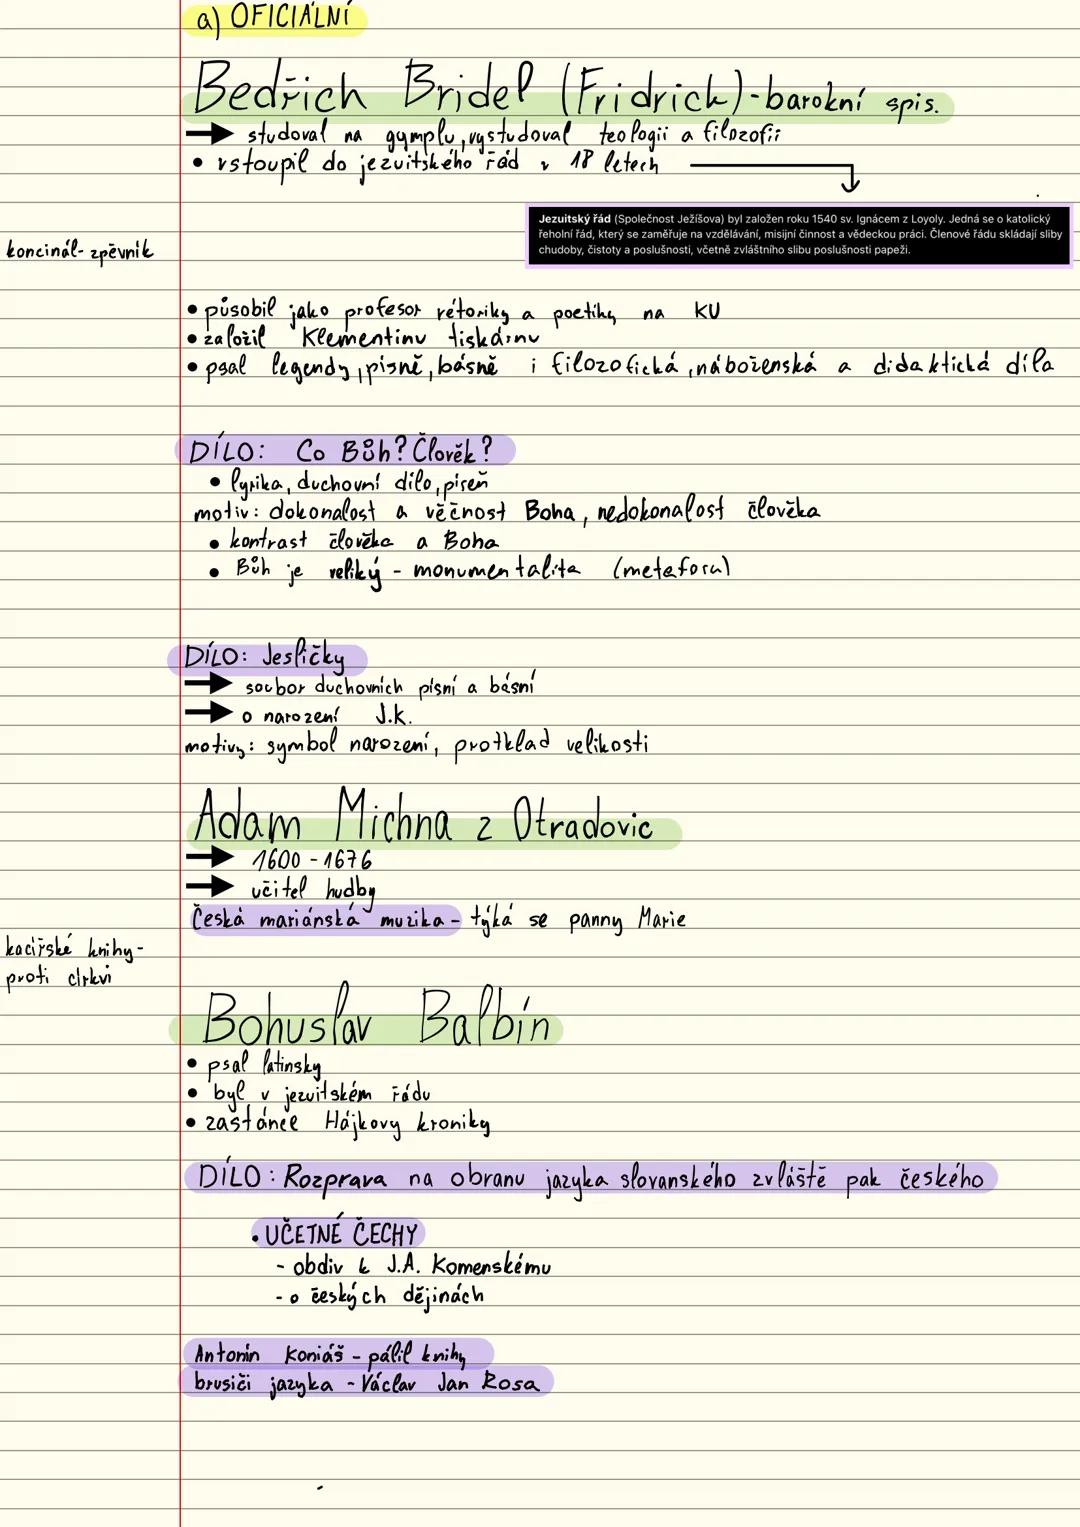 a) OFICIÁLNÍ
Bedřich Bridel (Fridrich) - barokní spis.
→ studoval na gymplu, vystudoval teologii a filozofii
• vstoupil do jezuitského řád v 18 letech
Jezuitský řád (Společnost Ježíšova) byl založen roku 1540 sv. Ignácem z Loyoly. Jedná se o katolický
řeholní řád, který se zaměřuje na vzdělávání, misijní činnost a vědeckou práci. Členové řádu skládají sliby
chudoby, čistoty a poslušnosti, včetně zvláštního slibu poslušnosti papeži.
koncinál - zpěvník
• působil jako profesor rétoriky a poetiky na KU
• založil Klementinu tiskárnu
• psal legendy, písně, básně i filozofická, náboženská a didaktická díla
DÍLO: Co Bůh? Člověk?
• lyrika, duchovní dílo, píseň
motiv: dokonalost a věčnost Boha, nedokonalost člověka
• kontrast člověka a Boha
• Bůh je veliký - monumentalita (metafora)
DÍLO: Jesličky
→ soubor duchovních písní a básní
→ o narození J.k.
motivy: symbol narození, protklad velikosti
Adam Michna z Otradovic
→ 1600 - 1676
→ učitel hudby
Česká mariánská muzika - týká se panny Marie
kacířské knihy -
proti církvi
Bohuslav Balbín
• psal latinsky
• byl v jezuitském řádu
• zastánce Hájkovy kroniky
DÍLO: Rozprava na obranu jazyka slovanského zvláště pak českého
• UČETNÉ ČECHY
- obdiv k J.A. Komenskému
- o českých dějinách
Antonín Koniáš - pálil knihy
brusiči jazyka - Václav Jan Rosa